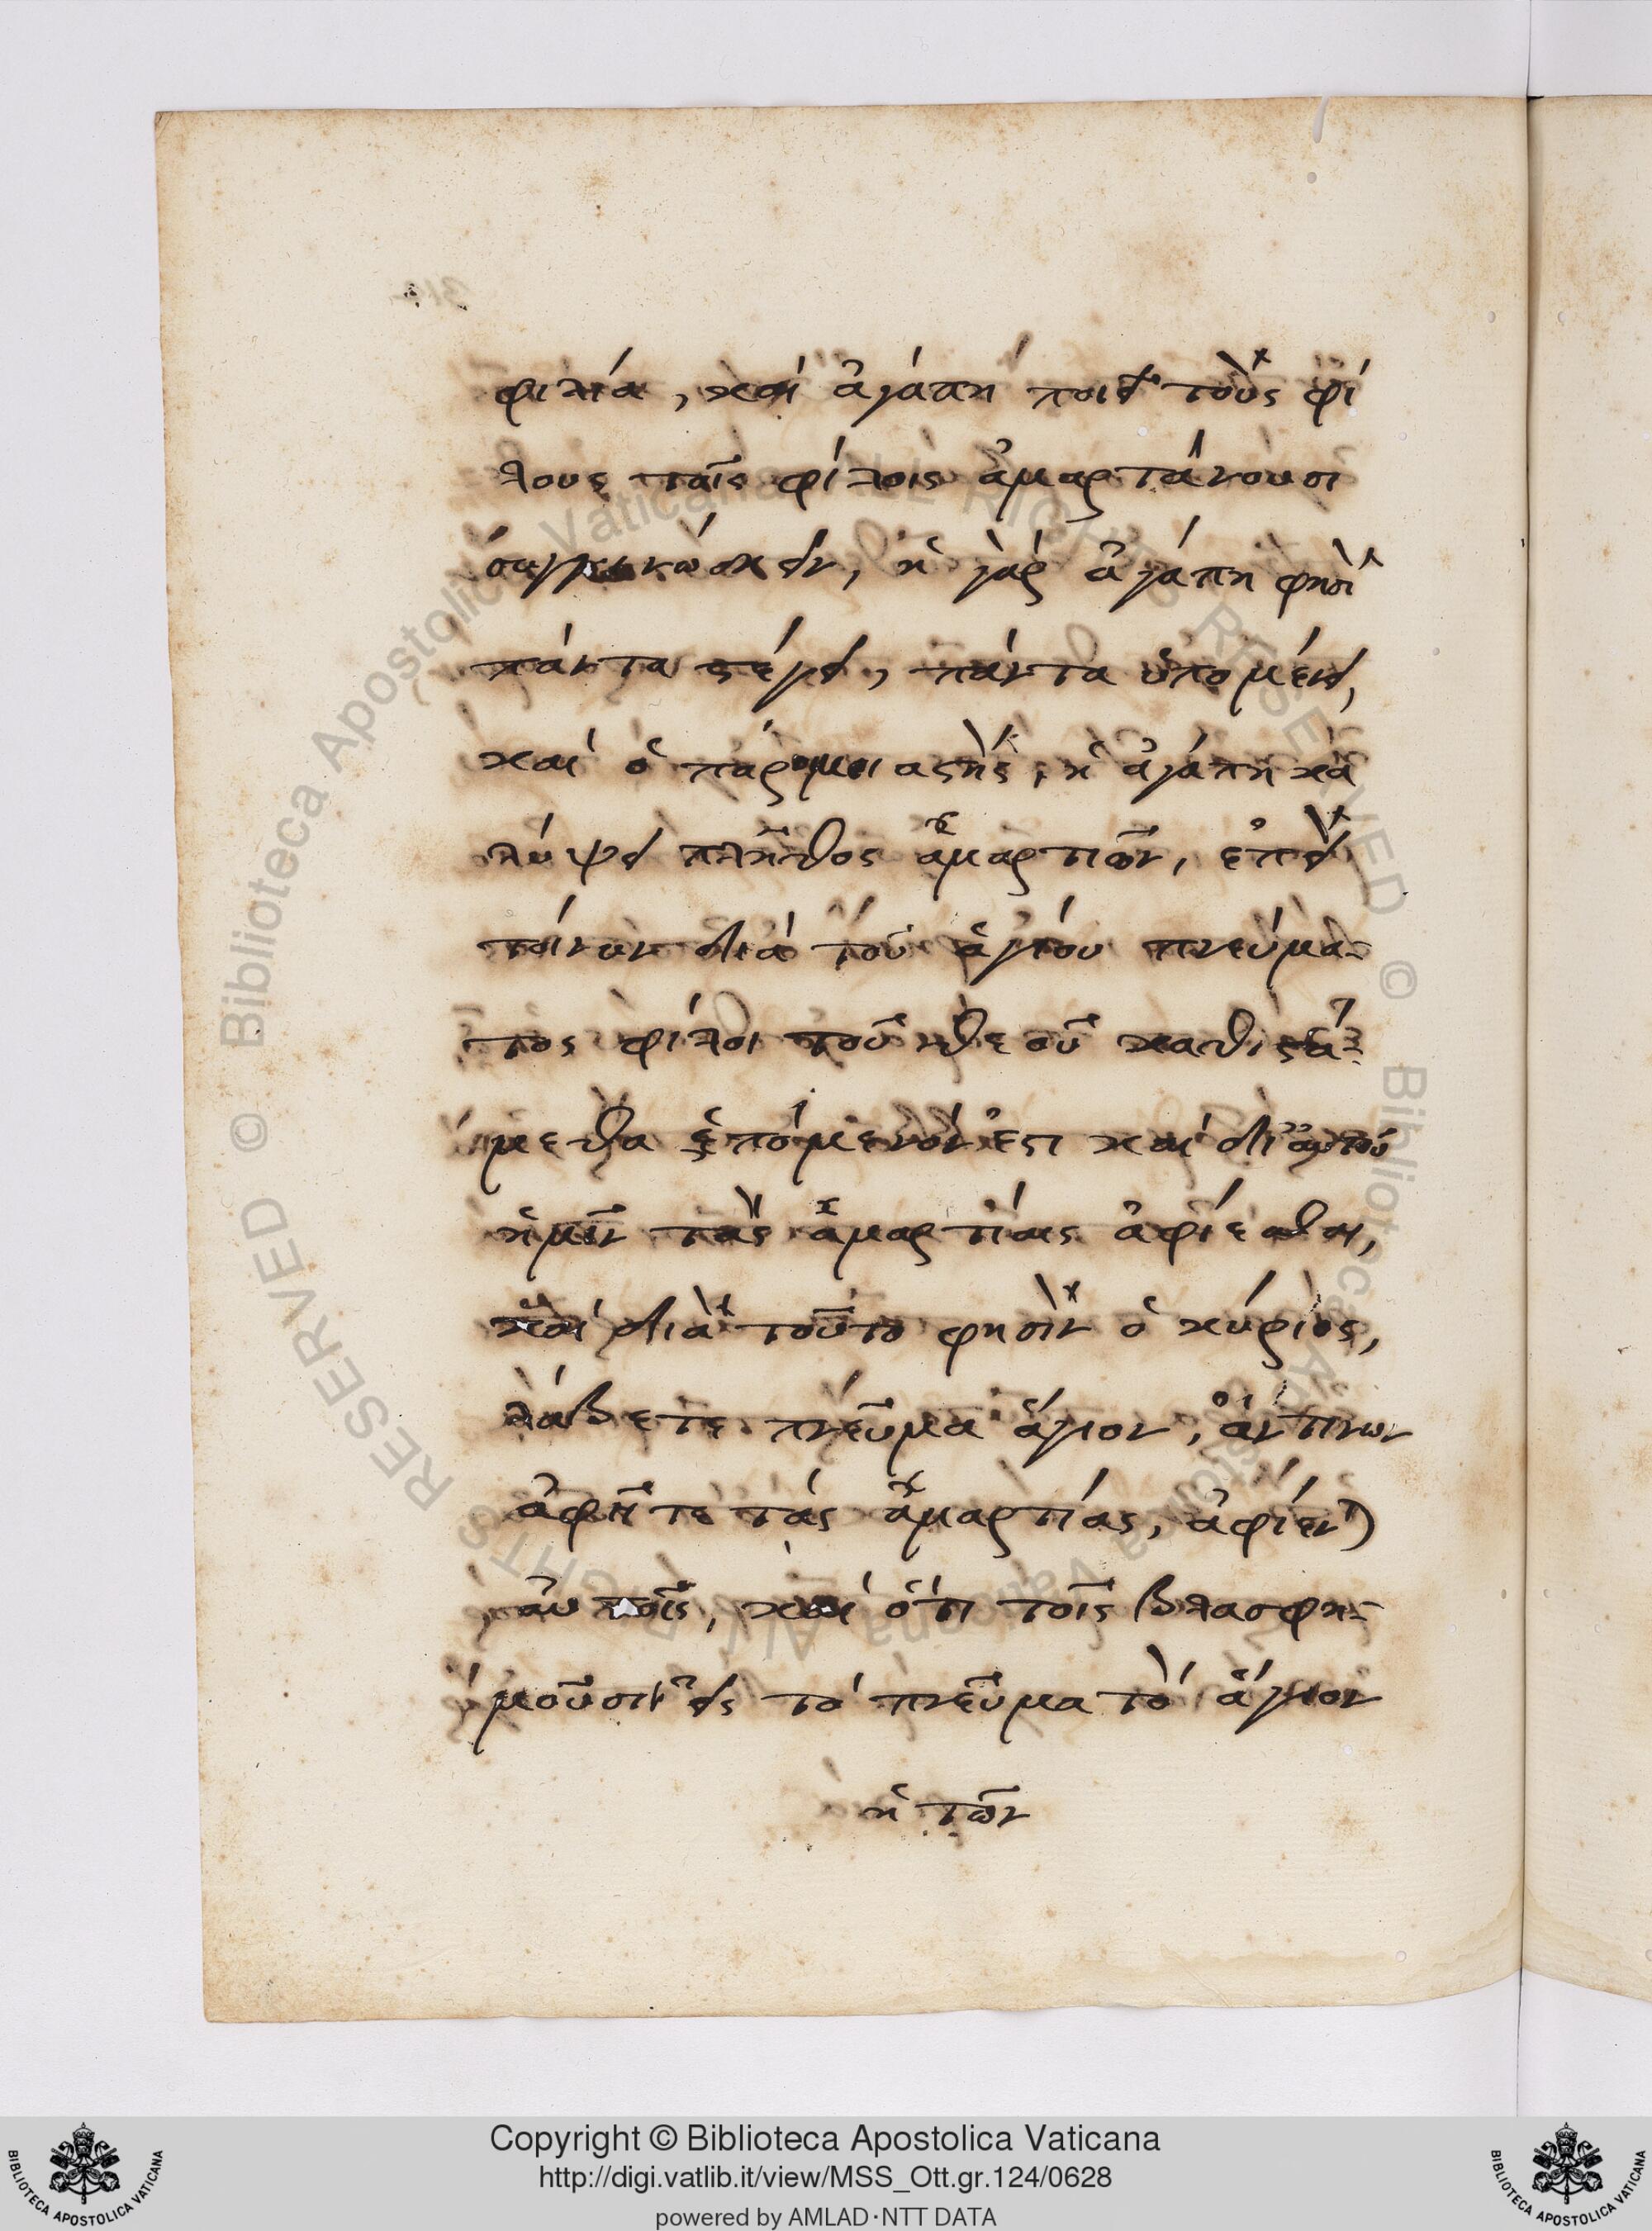 φιλία, καί ἀγάπη ποιεῖ τοὺς φί
λους ταῖς φίλοις ἁμαρτάνουσι
συγγινώσκειν, ἡ γὰρ ἀγάπη φησὶ
πάντα στέγει, πάντα ὑπομένει,
καί ὁ παροιμιαστὴς, ἡ ἀγάπη κα
λύψει πλῆθος ἁμαρτιῶν, ἐπεὶ
τοίνυν διά τοῦ ἁγίου πνεύμα-
τος φίλοι τοῦ θεοῦ καθιστά-
μεθα ἑπόμενόν ἐστι καί δι' αὐτοῦ
ἡμῖν τὰς ἁμαρτίας ἀφίεσθαι,
καί διὰ τοῦτο φησὶν ὁ κύριος,
λάβετε πνεῦμα ἅγιον, ἄν τινων
ἀφῆτε τάς ἁμαρτίας, ἀφίενται
αὐτοῖς, καί ὅτι τοῖς βλασφη-
μοῦσιν εἰς τό πνεῦμα τὸ ἅγιον
ἡ τῶν
Copyright © Biblioteca Apostolica Vaticana
http://digi.vatlib.it/view/MSS_Ott.gr.124/0628
powered by AMLAD·NTT DATA
BIBLIOTECA APOSTOLICA VATICANA
BIBLIOTECA APOSTOLICA VATICANA